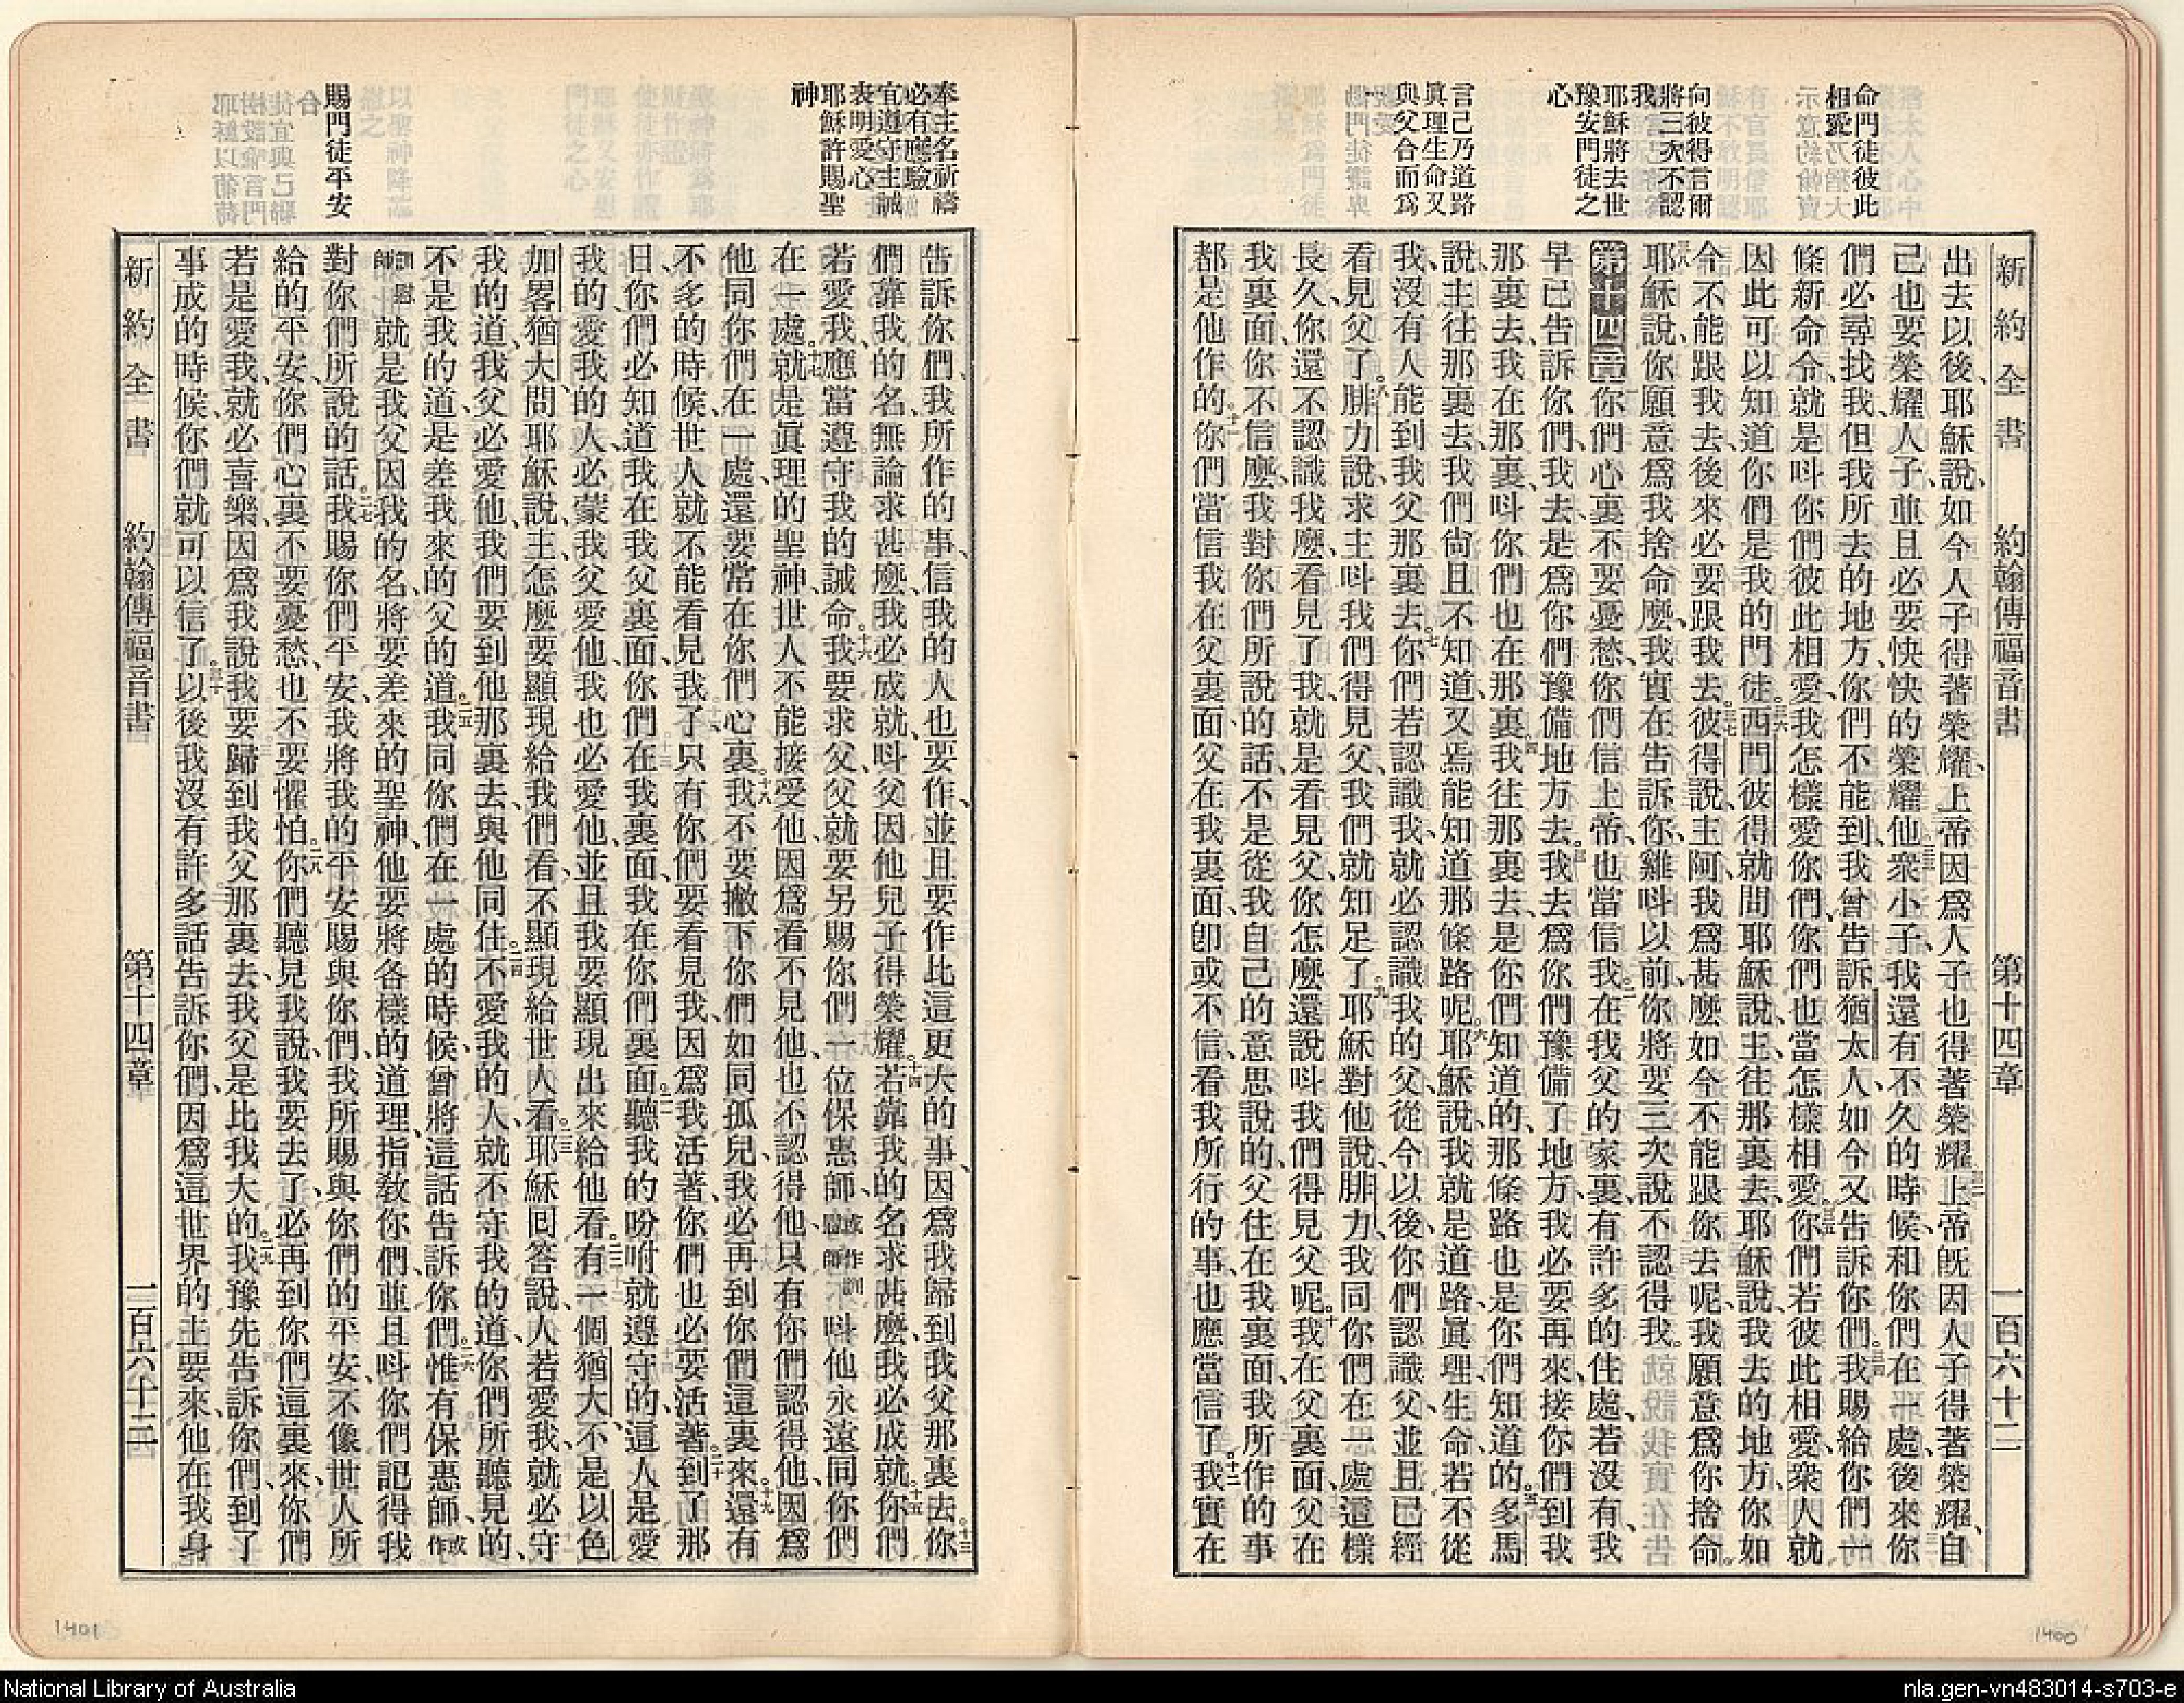 新約全書 約翰傳福音書 第十四章 一百六十二
命門徒彼此
相愛乃猶大
向彼得言爾
將三次不認
我
耶穌將去世
豫安門徒之
心
言己乃道路
眞理生命又
與父合而爲
一
出去以後、耶穌說、如今人子得著榮耀、上帝因爲人子也得著榮耀、上帝旣因人子得著榮耀、自
己也要榮耀人子、並且必要快快的榮耀他、衆小子、我還有不久的時候、和你們在一處、後來你
們必尋找我、但我所去的地方、你們不能到、我曾告訴猶太人、如今又告訴你們。我賜給你們一
條新命令、就是呌你們彼此相愛、我怎樣愛你們、你們也當怎樣相愛。你們若彼此相愛、衆人就
因此可以知道你們是我的門徒。西門彼得就問耶穌說、主往那裏去、耶穌說、我去的地方、你如
今不能跟我去、後來必要跟我去。彼得說、主阿、我爲甚麼如今不能跟你去呢、我願意爲你捨命。
耶穌說、你願意爲我捨命麼、我實在告訴你、雞呌以前、你將要三次說不認得我。
第十四章 你們心裏不要憂愁、你們信上帝、也當信我。在我父的家裏、有許多的住處、若沒有、我
早已告訴你們、我去是爲你們豫備地方去。我去爲你們豫備了地方、我必要再來、接你們到我
那裏去、我在那裏、呌你們也在那裏。我往那裏去、是你們知道的、那條路也是你們知道的。多馬
說、主往那裏去、我們尙且不知道、又焉能知道那條路呢。耶穌說、我就是道路、眞理、生命、若不從
我、沒有人能到我父那裏去。你們若認識我、就必認識我的父、從今以後、你們認識父、並且已經
看見父了。腓力說、求主呌我們得見父、我們就知足了。耶穌對他說、腓力、我同你們在一處這樣
長久、你還不認識我麼、看見了我、就是看見父、你怎麼還說呌我們得見父呢。我在父裏面、父在
我裏面、你不信麼、我對你們所說的話、不是從我自己的意思說的、父住在我裏面、我所作的事
都是他作的。你們當信我在父裏面、父在我裏面、卽或不信、看我所行的事、也應當信了。我實在
新約全書 約翰傳福音書 第十四章 一百六十三
奉主名祈禱
必有應驗
宜遵守主誡
表明愛心
耶穌許賜聖
神
賜門徒平安
告訴你們、我所作的事、信我的人也要作、並且要作比這更大的事、因爲我歸到我父那裏去。你
們靠我的名、無論求甚麼、我必成就、呌父因他兒子得榮耀。若靠我的名求甚麼、我必成就。你們
若愛我、應當遵守我的誡命。我要求父、父就要另賜你們一位保惠師、或作訓慰師 呌他永遠同你們
在一處。就是眞理的聖神、世人不能接受他、因爲看不見他、也不認得他、只有你們認得他、因爲
他同你們在一處、還要常在你們心裏。我不要撇下你們如同孤兒、我必再到你們這裏來。還有
不多的時候、世人就不能看見我了、只有你們要看見我、因爲我活著、你們也必要活著。到了那
日、你們必知道我在我父裏面、你們在我裏面、我在你們裏面。聽我的吩咐就遵守的、這人是愛
我的、愛我的人、必蒙我父愛他、我也必愛他、並且我要顯現出來給他看。有一個猶大、不是以色
加畧猶大、問耶穌說、主怎麼要顯現給我們看、不顯現給世人看。耶穌回答說、人若愛我、就必守
我的道、我父必愛他、我們要到他那裏去、與他同住。不愛我的人、就不守我的道、你們所聽見的、
不是我的道、是差我來的父的道。我同你們在一處的時候、曾將這話告訴你們。惟有保惠師、或作
訓慰師 就是我父因我的名、將要差來的聖神、他要將各樣的道理、指敎你們、並且呌你們記得我
對你們所說的話。我賜你們平安、我將我的平安賜與你們、我所賜與你們的平安、不像世人所
給的平安、你們心裏不要憂愁、也不要懼怕。你們聽見我說、我要去了、必再到你們這裏來、你們
若是愛我、就必喜樂、因爲我說我要歸到我父那裏去、我父是比我大的。我豫先告訴你們、到了
事成的時候、你們就可以信了。以後我沒有許多話告訴你們、因爲這世界的主要來、他在我身
1401
1400
National Library of Australia
nla.gen-vn483014-s703-e